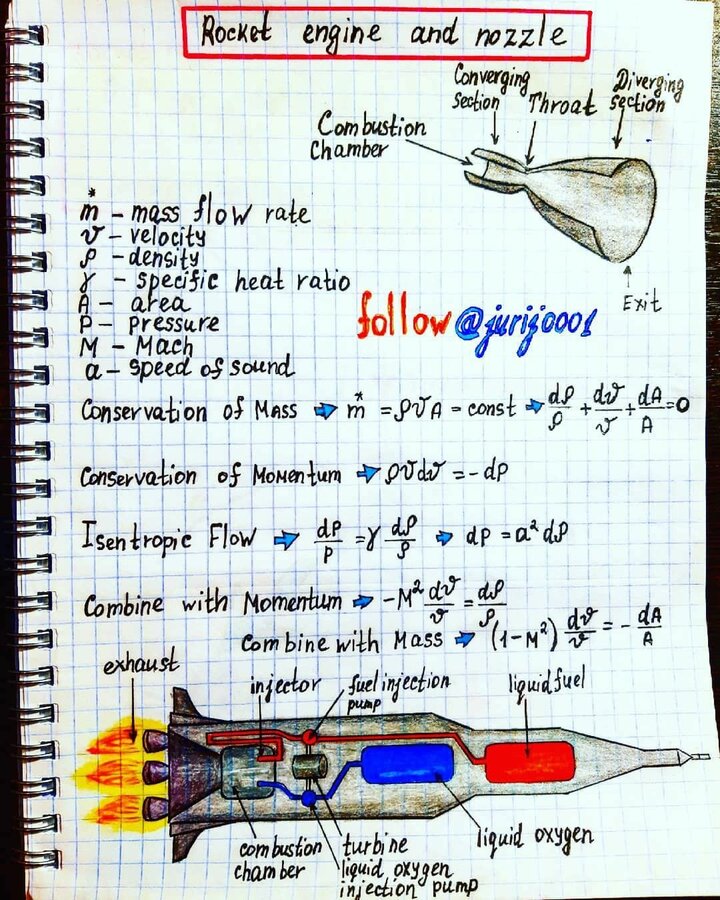 Rocket engine and nozzle
Converging
section
Throat
Diverging
section
Combustion
Chamber
Exit
ṁ - mass flow rate
v - velocity
ρ - density
γ - specific heat ratio
A - area
P - pressure
M - Mach
a - speed of sound
follow @jurij0001
Conservation of Mass → ṁ = ρvA - const → dρ/ρ + dv/v + dA/A = 0
Conservation of Momentum → ρvdv = -dP
Isentropic Flow → dP/P = γ dρ/ρ → dP = a² dρ
Combine with Momentum → -M² dv/v = dρ/ρ
Combine with Mass → (1-M²) dv/v = - dA/A
exhaust
injector
fuel injection
pump
liquid fuel
combustion
chamber
turbine
liquid oxygen
injection pump
liquid oxygen